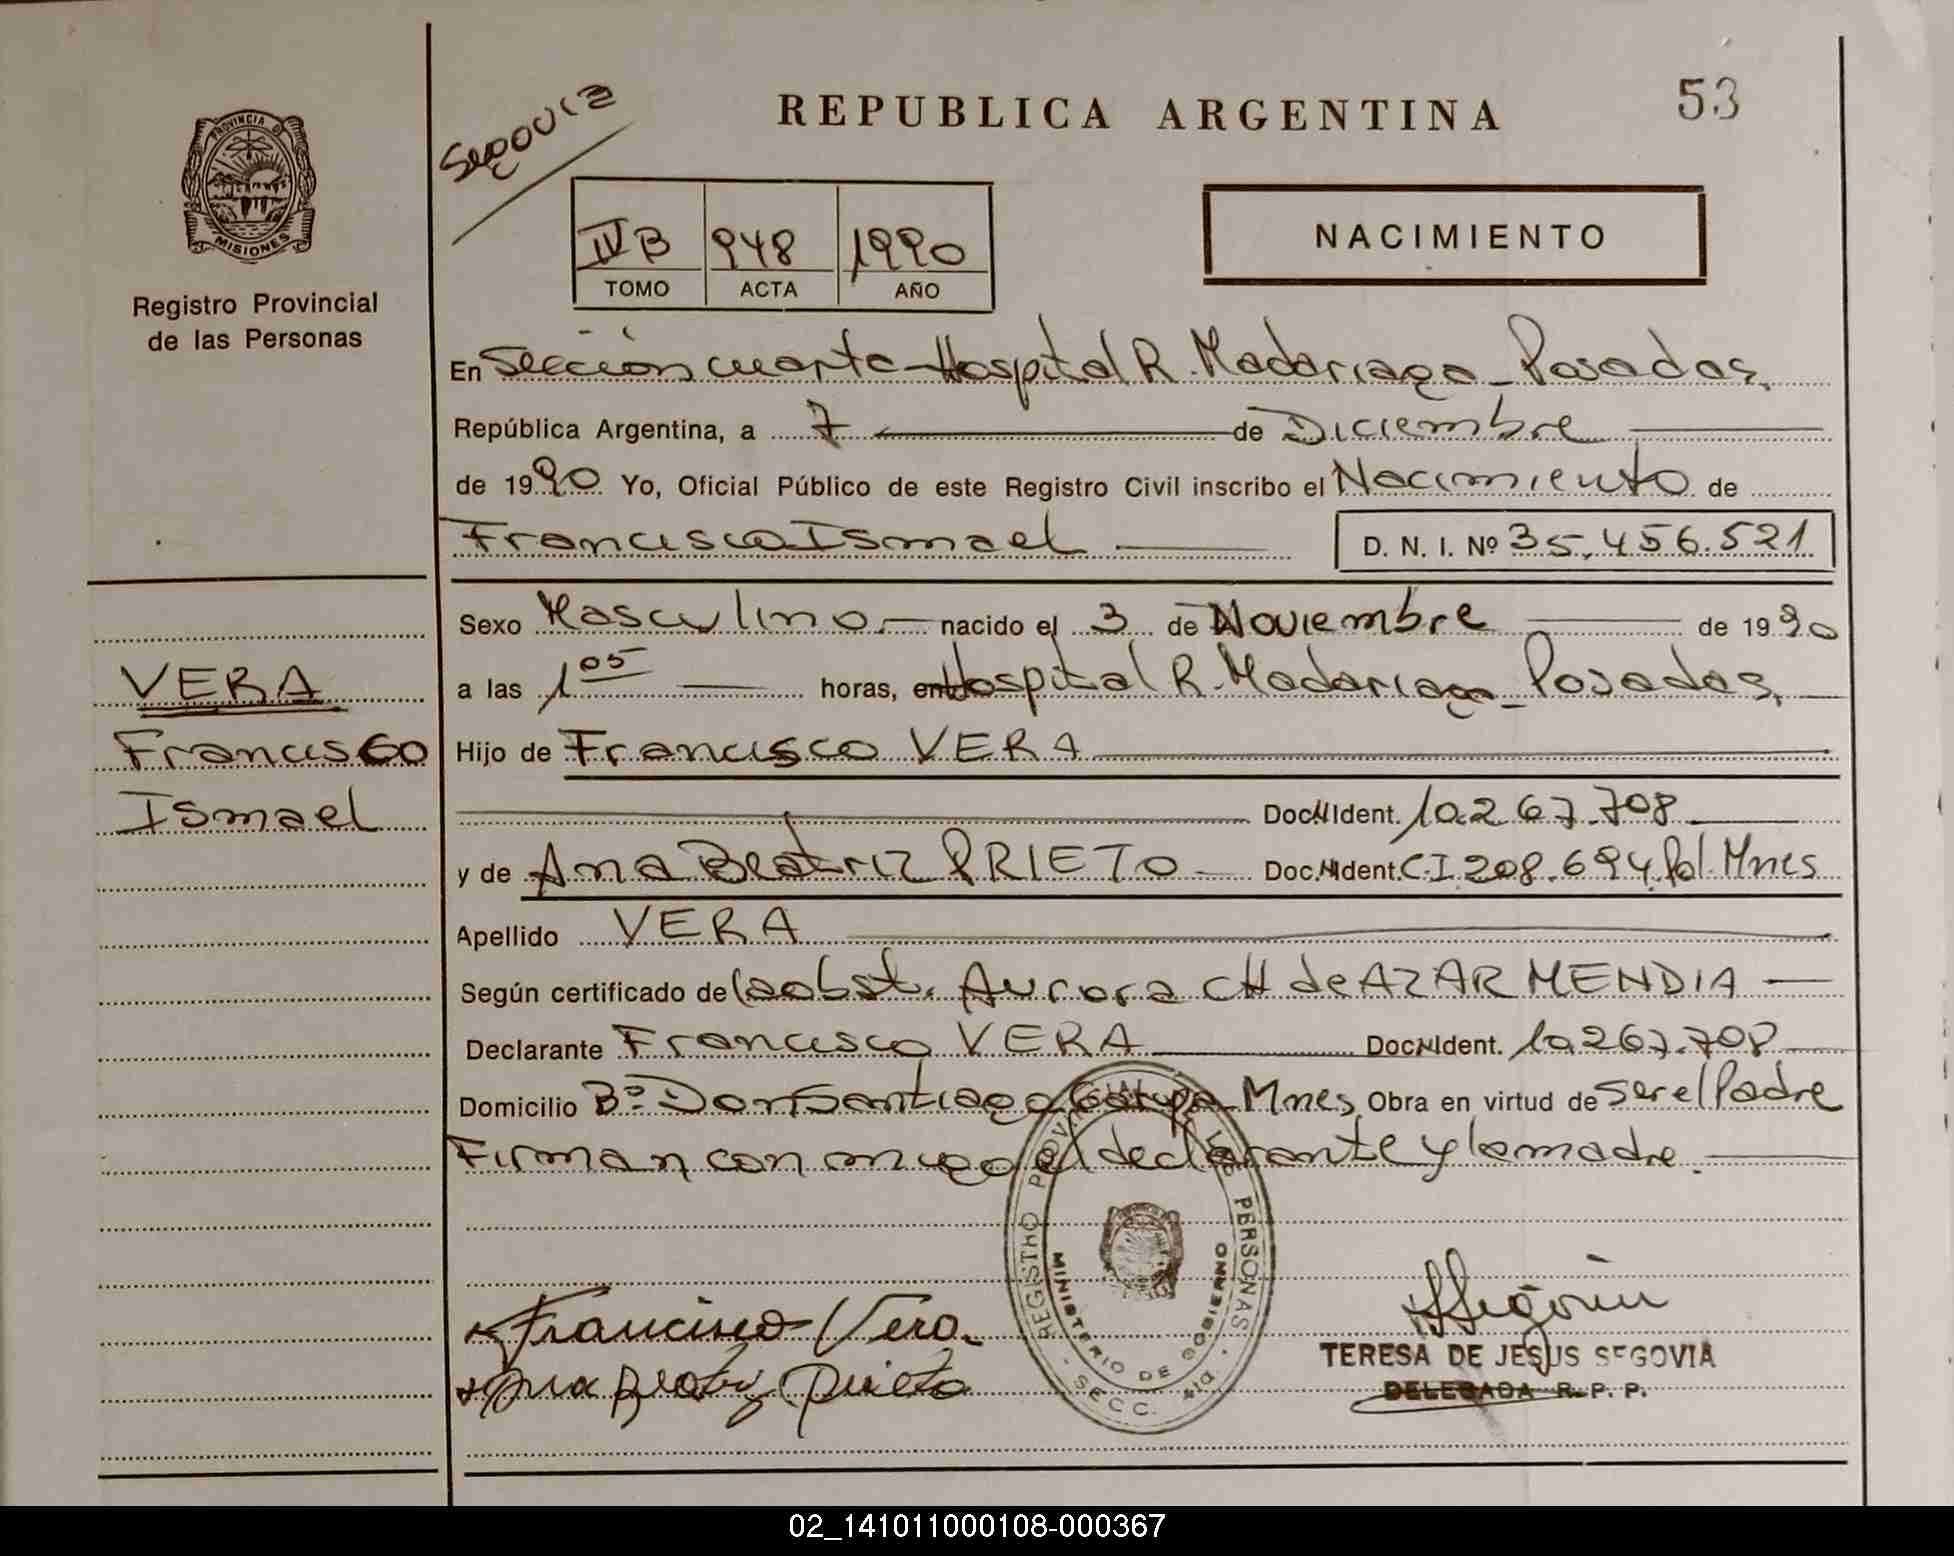 53
Segovia
REPUBLICA ARGENTINA
PROVINCIA D
MISIONES
Registro Provincial
de las Personas
IV B 948 1990
TOMO ACTA AÑO
NACIMIENTO
En Sección cuarta - Hospital R. Madariaga - Posadas,
República Argentina, a 7 de Diciembre
de 1990 Yo, Oficial Público de este Registro Civil inscribo el Nacimiento de
Francisco Ismael D. N. I. Nº 35.456.521
Sexo Masculino. nacido el 3 de Noviembre de 1990
VERA
a las 1 05 horas, en Hospital R. Madariaga - Posadas,
Francisco
Hijo de Francisco VERA
Ismael
Doc. N Ident. 10.267.708
y de Ana Beatriz PRIETO Doc. N Ident. C.I. 208.694 Pol. Mnes
Apellido VERA
Según certificado de la obst. Aurora CH de AZARMENDIA
Declarante Francisco VERA Doc N Ident. 10.267.708
Domicilio Bº Don Santiago Garupa - Mnes, Obra en virtud de ser el Padre
Firman conmigo el declarante y la madre.
REGISTRO PROVINCIAL DE LAS PERSONAS
MINISTERIO DE GOBIERNO
SECC. 4ta
Francisco Vero.
Ana Beatriz Prieto
Segovia
TERESA DE JESUS SEGOVIA
DELEGADA R. P. P.
02_141011000108-000367